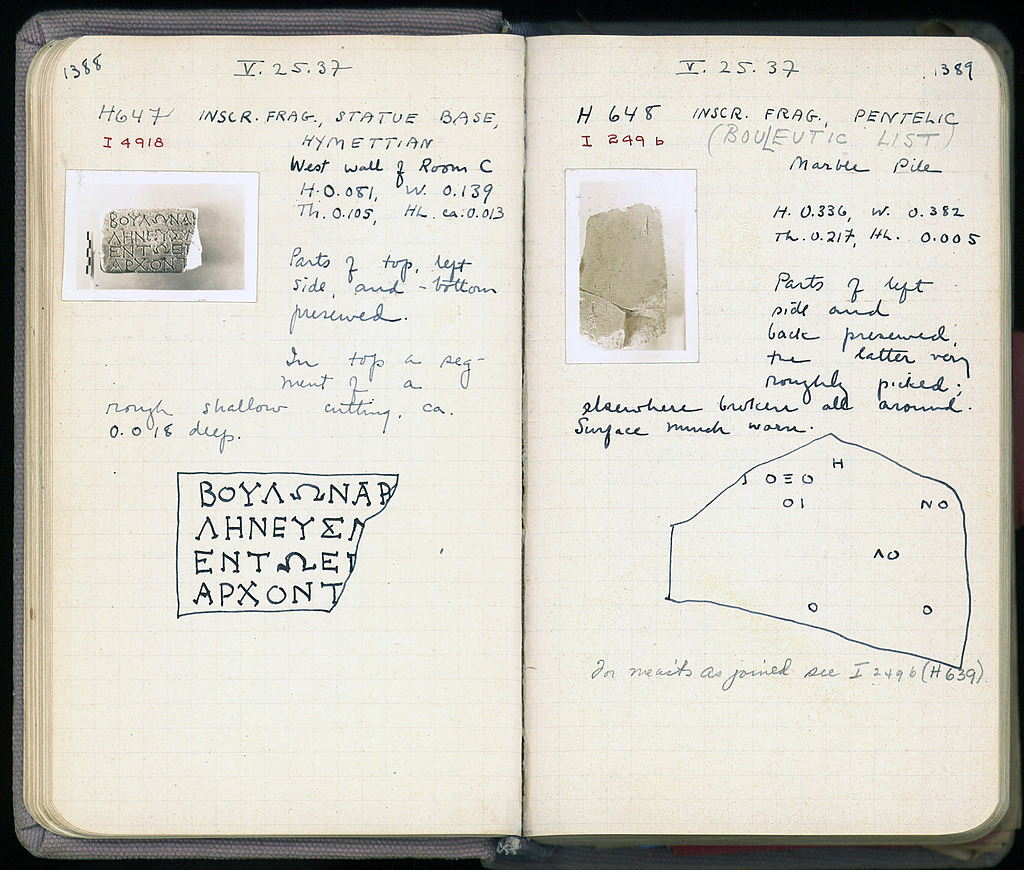 1388
V. 25. 37
H 647 INSCR. FRAG., STATUE BASE,
I 4918 HYMETTIAN
West wall of Room C
H. 0.081, W. 0.139
Th. 0.105, HL. ca. 0.013
ΒΟΥΛΩΝΑ
ΛΗΝΕΥΣ
ΕΝΤΩΕΙ
ΑΡΧΟΝΤ
Parts of top, left
side, and bottom
preserved.
In top a seg-
ment of a
rough shallow cutting, ca.
0.018 deep.
ΒΟΥΛΩΝΑΡ
ΛΗΝΕΥΣ
ΕΝΤΩΕΙ
ΑΡΧΟΝΤ
V. 25. 37
1389
H 648 INSCR. FRAG., PENTELIC
I 249 b (BOULEUTIC LIST)
Marble Pile
H. 0.336, W. 0.382
Th. 0.217, HL. 0.005
Parts of left
side and
back preserved,
the latter very
roughly picked;
elsewhere broken all around.
Surface much worn.
Η
ΟΞΟ
ΟΙ ΝΟ
ΛΟ
Ο Ο
For meas'ts as joined see I 249 b (H 639).